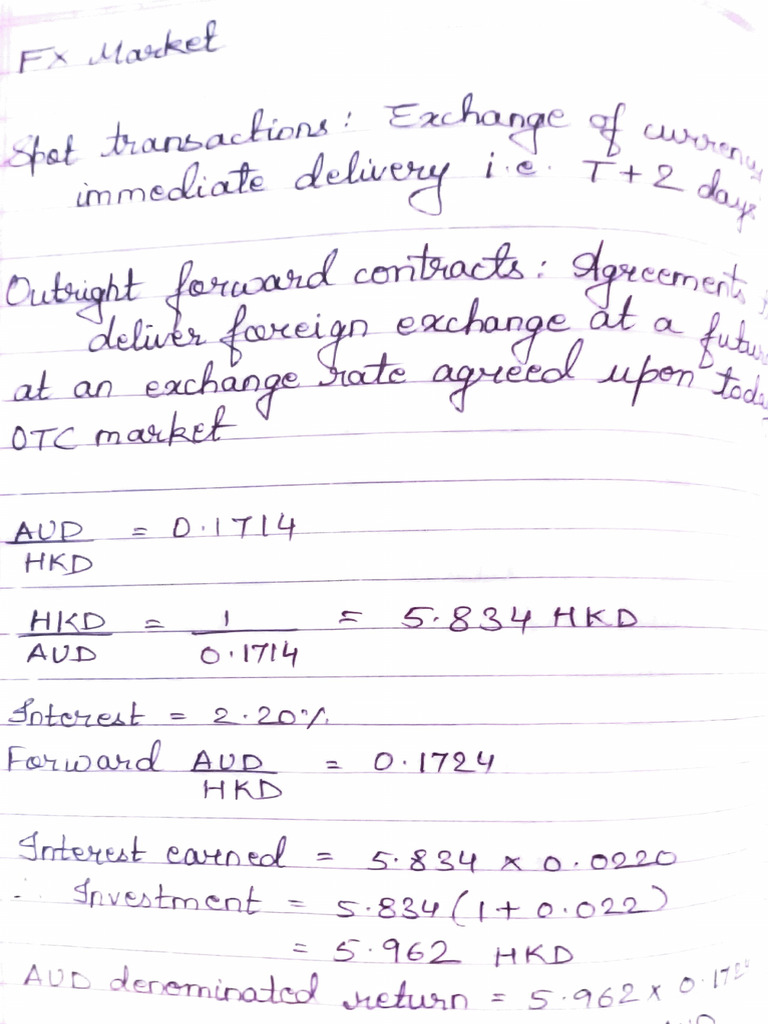 FX Market
Spot transactions: Exchange of currency
immediate delivery i.e. T+2 days
Outright forward contracts: Agreements
deliver foreign exchange at a
at an exchange rate agreed upon
OTC market
AUD/HKD = 0.1714
HKD/AUD = 1/0.1714 = 5.834 HKD
Interest = 2.20%
Forward AUD/HKD = 0.1724
Interest earned = 5.834 × 0.0220
∴ Investment = 5.834(1+0.022)
= 5.962 HKD
AUD denominated return = 5.962 ×